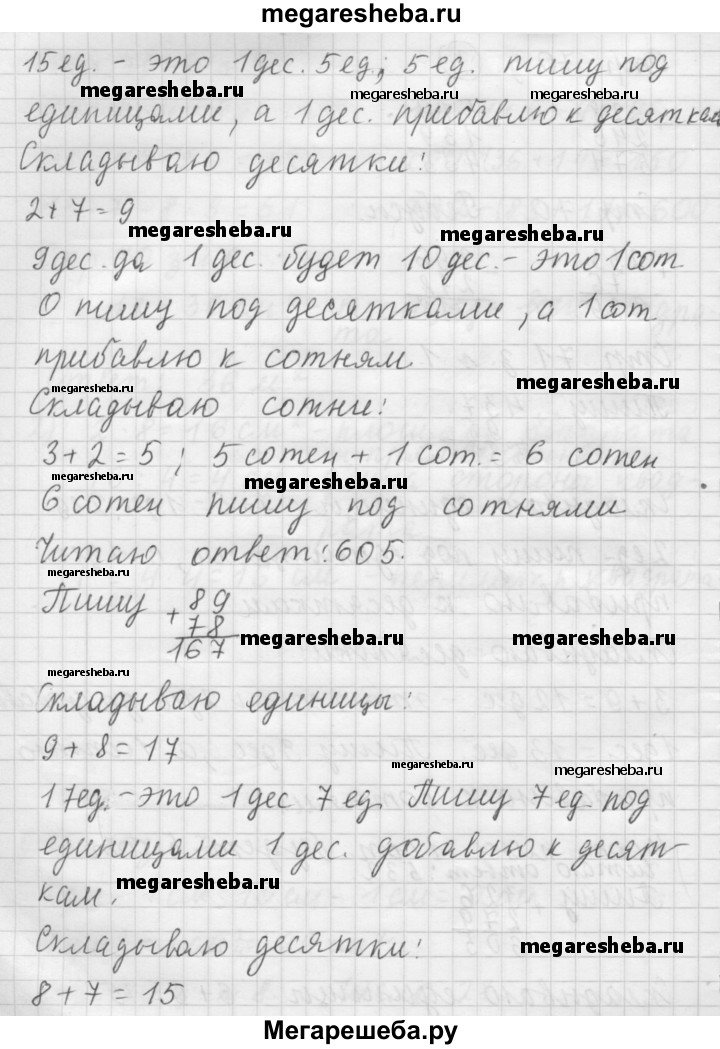 megaresheba.ru
15 ед. - это 1 дес. 5 ед; 5 ед. пишу под
megaresheba.ru megaresheba.ru megaresheba.ru
единицами, а 1 дес. прибавлю к десяткам
Складываю десятки:
2 + 7 = 9
megaresheba.ru megaresheba.ru
9 дес. да 1 дес. будет 10 дес. - это 1 сот
0 пишу под десятками, а 1 сот.
прибавлю к сотням.
megaresheba.ru megaresheba.ru
Складываю сотни:
3 + 2 = 5; 5 сотен + 1 сот. = 6 сотен
megaresheba.ru megaresheba.ru
6 сотен пишу под сотнями
Читаю ответ: 605.
megaresheba.ru
Пишу + 89
78
167
megaresheba.ru megaresheba.ru
megaresheba.ru
Складываю единицы:
9 + 8 = 17
megaresheba.ru megaresheba.ru
17 ед. - это 1 дес 7 ед. Пишу 7 ед. под
единицами 1 дес. добавлю к десят-
кам.
megaresheba.ru
Складываю десятки:
megaresheba.ru
8 + 7 = 15
Мегарешеба.ру